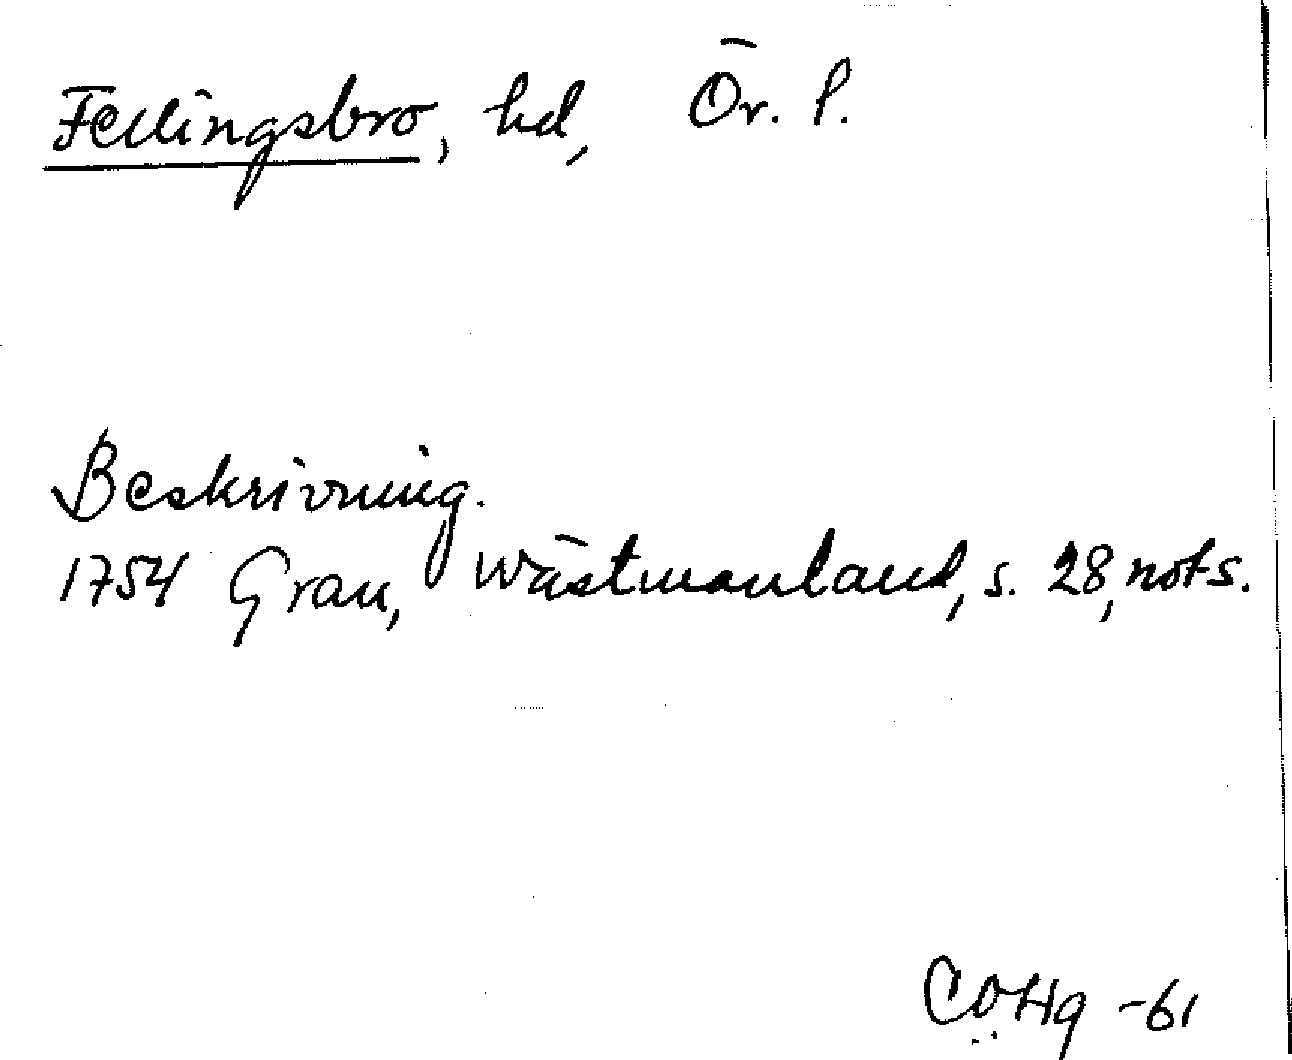 Fellingsbro, hd, Ör. l.
Beskrivning.
1754 Grau, Wästmanland, s. 28, not s.
CÖHg -61